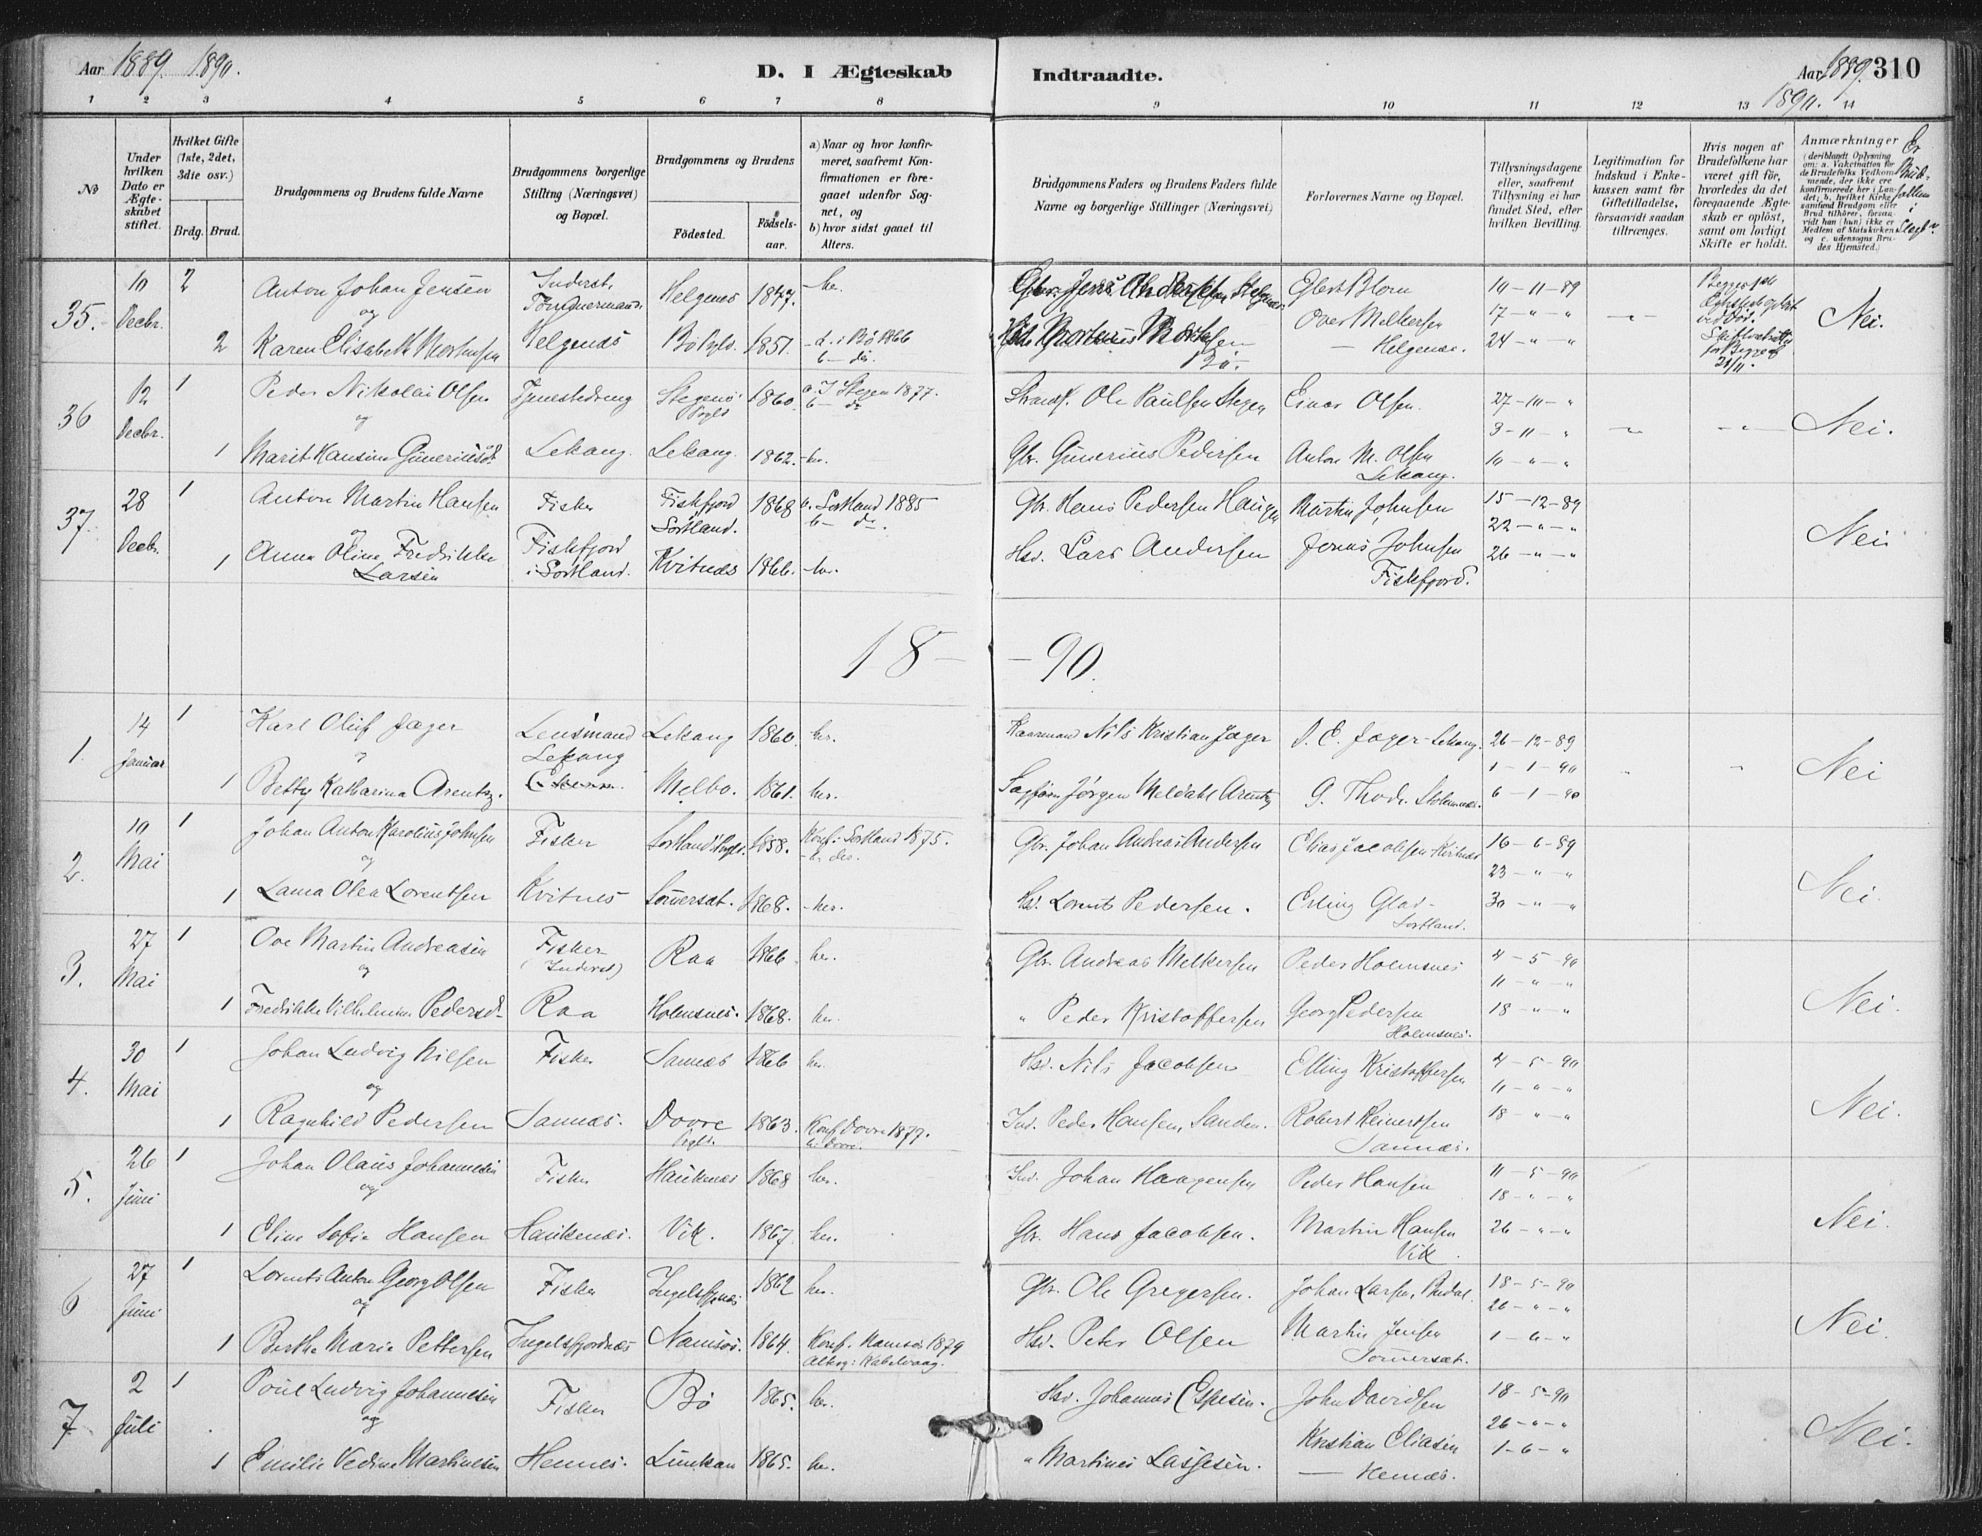 Aar 1889. 1890.
D. I Ægteskab
Indtraadte.
Aar 1889. 310
1890.
1 2 3 4 5 6 7 8 9 10 11 12 13 14
No
Under hvilken Dato er Ægteskabet stiftet.
Hvilket Gifte (1ste, 2det, 3die osv.)
Brdg. Brud.
Brudgommens og Brudens fulde Navne
Brudgommens borgerlige Stilling (Næringsvei) og Bopæl.
Brudgommens og Brudens
Födested.
Födselsaar.
a) Naar og hvor konfirmeret, saafremt Konfirmationen er foregaaet udenfor Sognet, og
b) hvor sidst gaaet til Alters.
Brudgommens Faders og Brudens Faders fulde Navne og borgerlige Stillinger (Næringsvei)
Forlovernes Navne og Bopæl.
Tillysningsdagene eller, saafremt Tillysning ei har fundet Sted, efter hvilken Bevilling.
Legitimation for Indskud i Enkekassen samt for Giftetilladelse, forsaavidt saadan tiltrænges.
Hvis nogen af Brudefolkene har været gift för, hvorledes da det foregaaende Ægteskab er oplöst, samt om lovligt Skifte er holdt.
Anmærkninger
35. 10 Decbr. 2 Anton Johan Jensen Inderst. Helgenes 1847. her. Elert Blom 10-11-89
og Over Melkersen 17 - " - " Nei.
2 Karen Elisabeth Mortensen Helgenes Bø Pgld. 1851. a. i Bø 1866 b - do. Bø. - Helgenæs. 24 - " - "
36 12 Decbr. 1 Peder Nikolai Olsen Tjenestedreng Stegens Pgld 1860. a. I Stegen 1877. b - do Strands. Ole Paulsen Stegen Einar Olsen. 27-10- "
og 3-11- " Nei.
1 Marit Hansine Guneriusd. Lekang. Lekang. 1862. her. Gbr. Gunerius Pedersen Anton M. Olsen Lekang. 10 - " - "
37 28 Decbr. 1 Anton Martin Hansen Fisker Fiskfjord Sortland. 1868 a. Sortland 1885 b - do. Gbr. Hans Pedersen Haugen Martin Johnsen 15-12-89
og 22 - " - " Nei
1 Anna Oline Fredrikke Larsen Fiskfjord i Sortland. Kvitnes 1866. her. Hsd. Lars Andersen Jonas Johnsen Fiskfjord. 26 - " - "
18 - - 90.
1. 14 Januar 1 Karl Oluf Jæger Lensmand Lekang 1860. her. Nils Kristian Jæger D. E. Jæger-Lekang. 26-12-89
og Lekang 1-1-90 Nei
1 Betty Katharina Arentz. Melbo. 1861. her. Sagfører Jørgen Meldahl Arentz G. Thode. Stokmarkn. 6-1-90
2. 10 Mai 1 Johan Anton Karolius Johnsen Fisker Sortland Pgld. 1858. Konf. i Sortland 1875. b. do. Gbr. Johan Andreas Andersen Elias Jacobsen-Kvitnæs 16-6-89
og 23 - " - " Nei.
1 Lama Olea Lorentsen Kvitnes Sommersæt. 1868. her. Hsd. Lorents Pedersen. Erling Glad - Sortland. 30 - " - "
3. 27 Mai 1 Ove Martin Andreasen Fisker (Inderst) Raa 1866. her. Gbr. Andreas Melkersen Peder Holmsnes 4-5-90
og 11 - " - " Nei.
1 Fredrikke Vilhelmine Pedersd. Raa Holmsnes. 1868. her. " Peder Kristoffersen Georg Pedersen Holmsnes. 18 - " - "
4. 30 Mai 1 Johan Ludvig Nilsen Fisker Sannæs 1866 her. Hsd. Nils Jacobsen Elling Kristoffersen 4-5-90
og 11 - " - " Nei.
1 Ragnhild Pedersen Sannæs. Dovre Pgld. 1863. Konf. Dovre 1879. b. Dovre. Ind. Peder Hansen, Sanden. Robert Reinertsen Sannæs. 18 - " - "
5. 26 Juni 1 Johan Olaus Johannesen Fisker Hauknæs 1868 her. Ind. Johan Haagensen Peder Hansen 11-5-90
og 18 - " - " Nei.
1 Eline Sofie Hansen Haukenæs. Vik. 1867. her. Gbr. Hans Jacobsen. Martin Hansen Vik. 26 - " - "
6 27 Juni 1 Lorents Anton Georg Olsen Fisker Ingelsfjnæs 1862 her. Gbr. Ole Gregersen. Johan Larsen, Budal. 18-5-90
og 26 - " - " Nei.
1 Berthe Marie Pettersen Ingelsfjordnæs Namsos. 1864. Konf. Namsos 1879 Alterg: Kabelvaag. Hsd. Peter Olsen Martin Jensen Sommersæt. 1-6- "
7 2 Juli 1 Poul Ludvig Johannesen Fisker Bø 1865. her. Hsd. Johannes Espesen. John Davidsen 18-5-90
og 26 - " - " Nei.
1 Emilie Vedine Martinesen Hennes. Lunkan 1865. her. " Martines Lassesen. Kristian Eliasen - Hennæs. 1-6- "